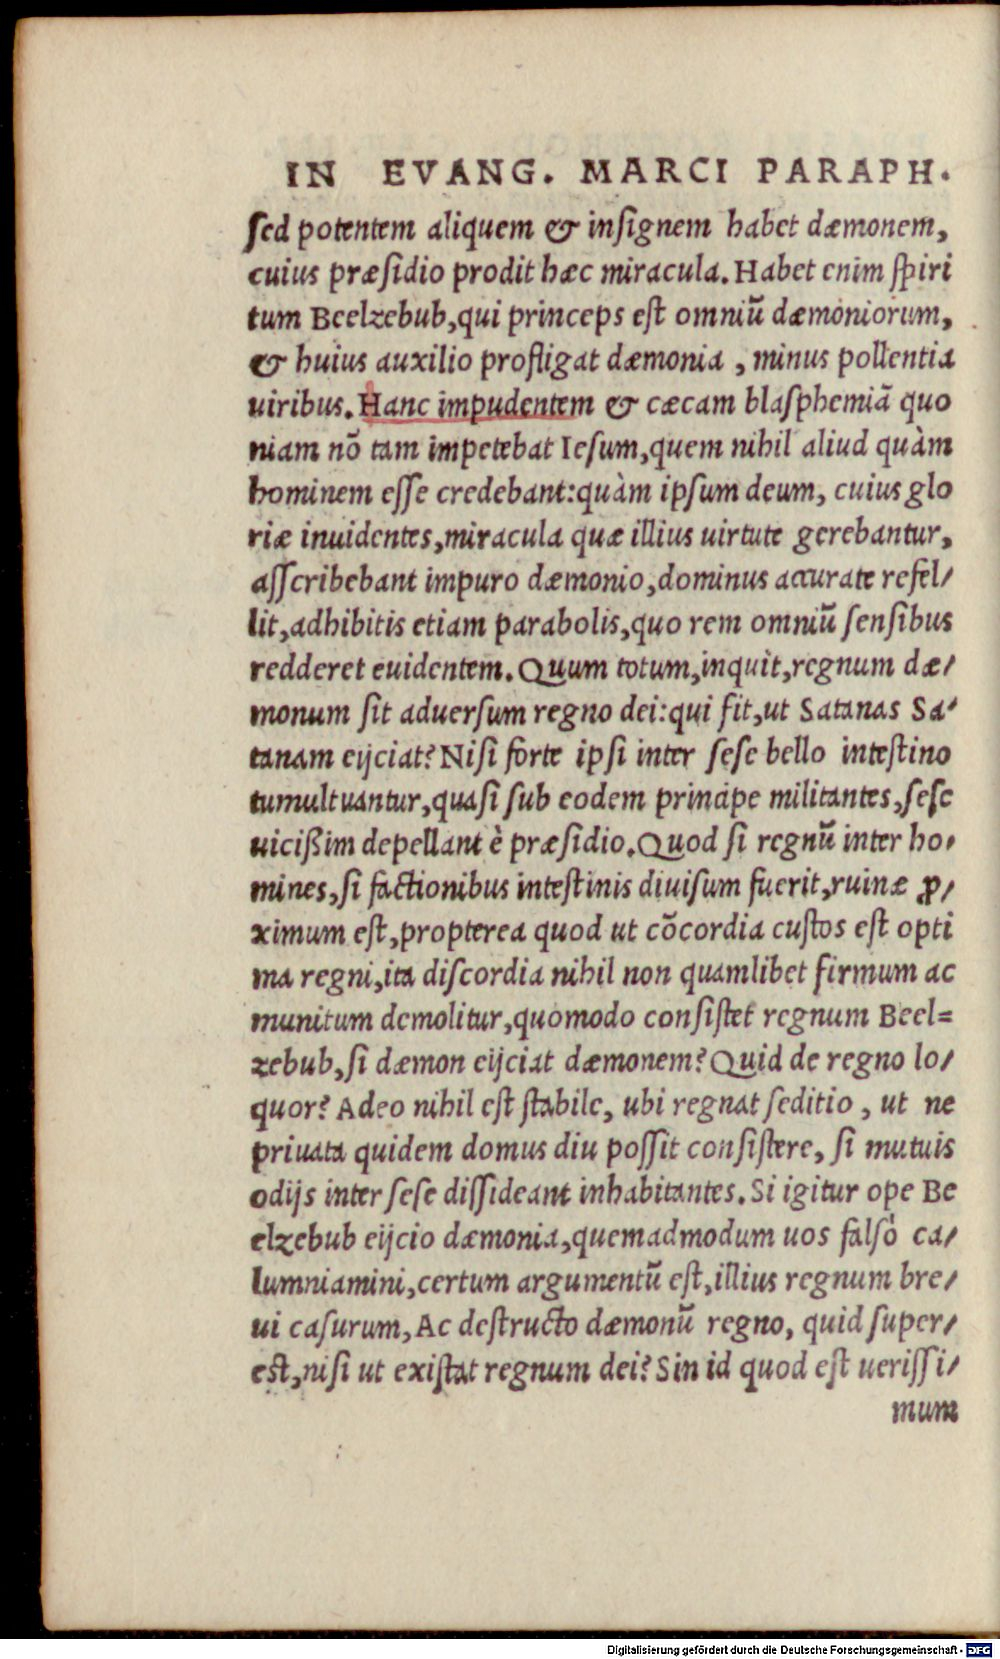 IN EVANG. MARCI PARAPH.
sed potentem aliquem & insignem habet dæmonem,
cuius præsidio prodit hæc miracula. Habet enim spiri
tum Beelzebub, qui princeps est omniũ dæmoniorum,
& huius auxilio profligat dæmonia, minus pollentia
uiribus. Hanc impudentem & cæcam blasphemiã quo
niam nõ tam impetebat Iesum, quem nihil aliud quàm
hominem esse credebant: quàm ipsum deum, cuius glo
riæ inuidentes, miracula quæ illius uirtute gerebantur,
asscribebant impuro dæmonio, dominus accurate refel/
lit, adhibitis etiam parabolis, quo rem omniũ sensibus
redderet euidentem. Quum totum, inquit, regnum dæ/
monum sit aduersum regno dei: qui fit, ut Satanas Sa/
tanam eijciat? Nisi forte ipsi inter sese bello intestino
tumultuantur, quasi sub eodem principe militantes, sese
uicißim depellant è præsidio. Quod si regnũ inter ho/
mines, si factionibus intestinis diuisum fuerit, ruinæ ꝓ/
ximum est, propterea quod ut cõcordia custos est opti
ma regni, ita discordia nihil non quamlibet firmum ac
munitum demolitur, quomodo consistet regnum Beel=
zebub, si dæmon eijciat dæmonem? Quid de regno lo/
quor? Adeo nihil est stabile, ubi regnat seditio, ut ne
priuata quidem domus diu possit consistere, si mutuis
odijs inter sese dissideant inhabitantes. Si igitur ope Be
elzebub eijcio dæmonia, quemadmodum uos falsò ca/
lumniamini, certum argumentũ est, illius regnum bre/
ui casurum, Ac destructo dæmonũ regno, quid super/
est, nisi ut existat regnum dei? Sin id quod est uerissi/
mum
Digitalisierung gefördert durch die Deutsche Forschungsgemeinschaft - DFG